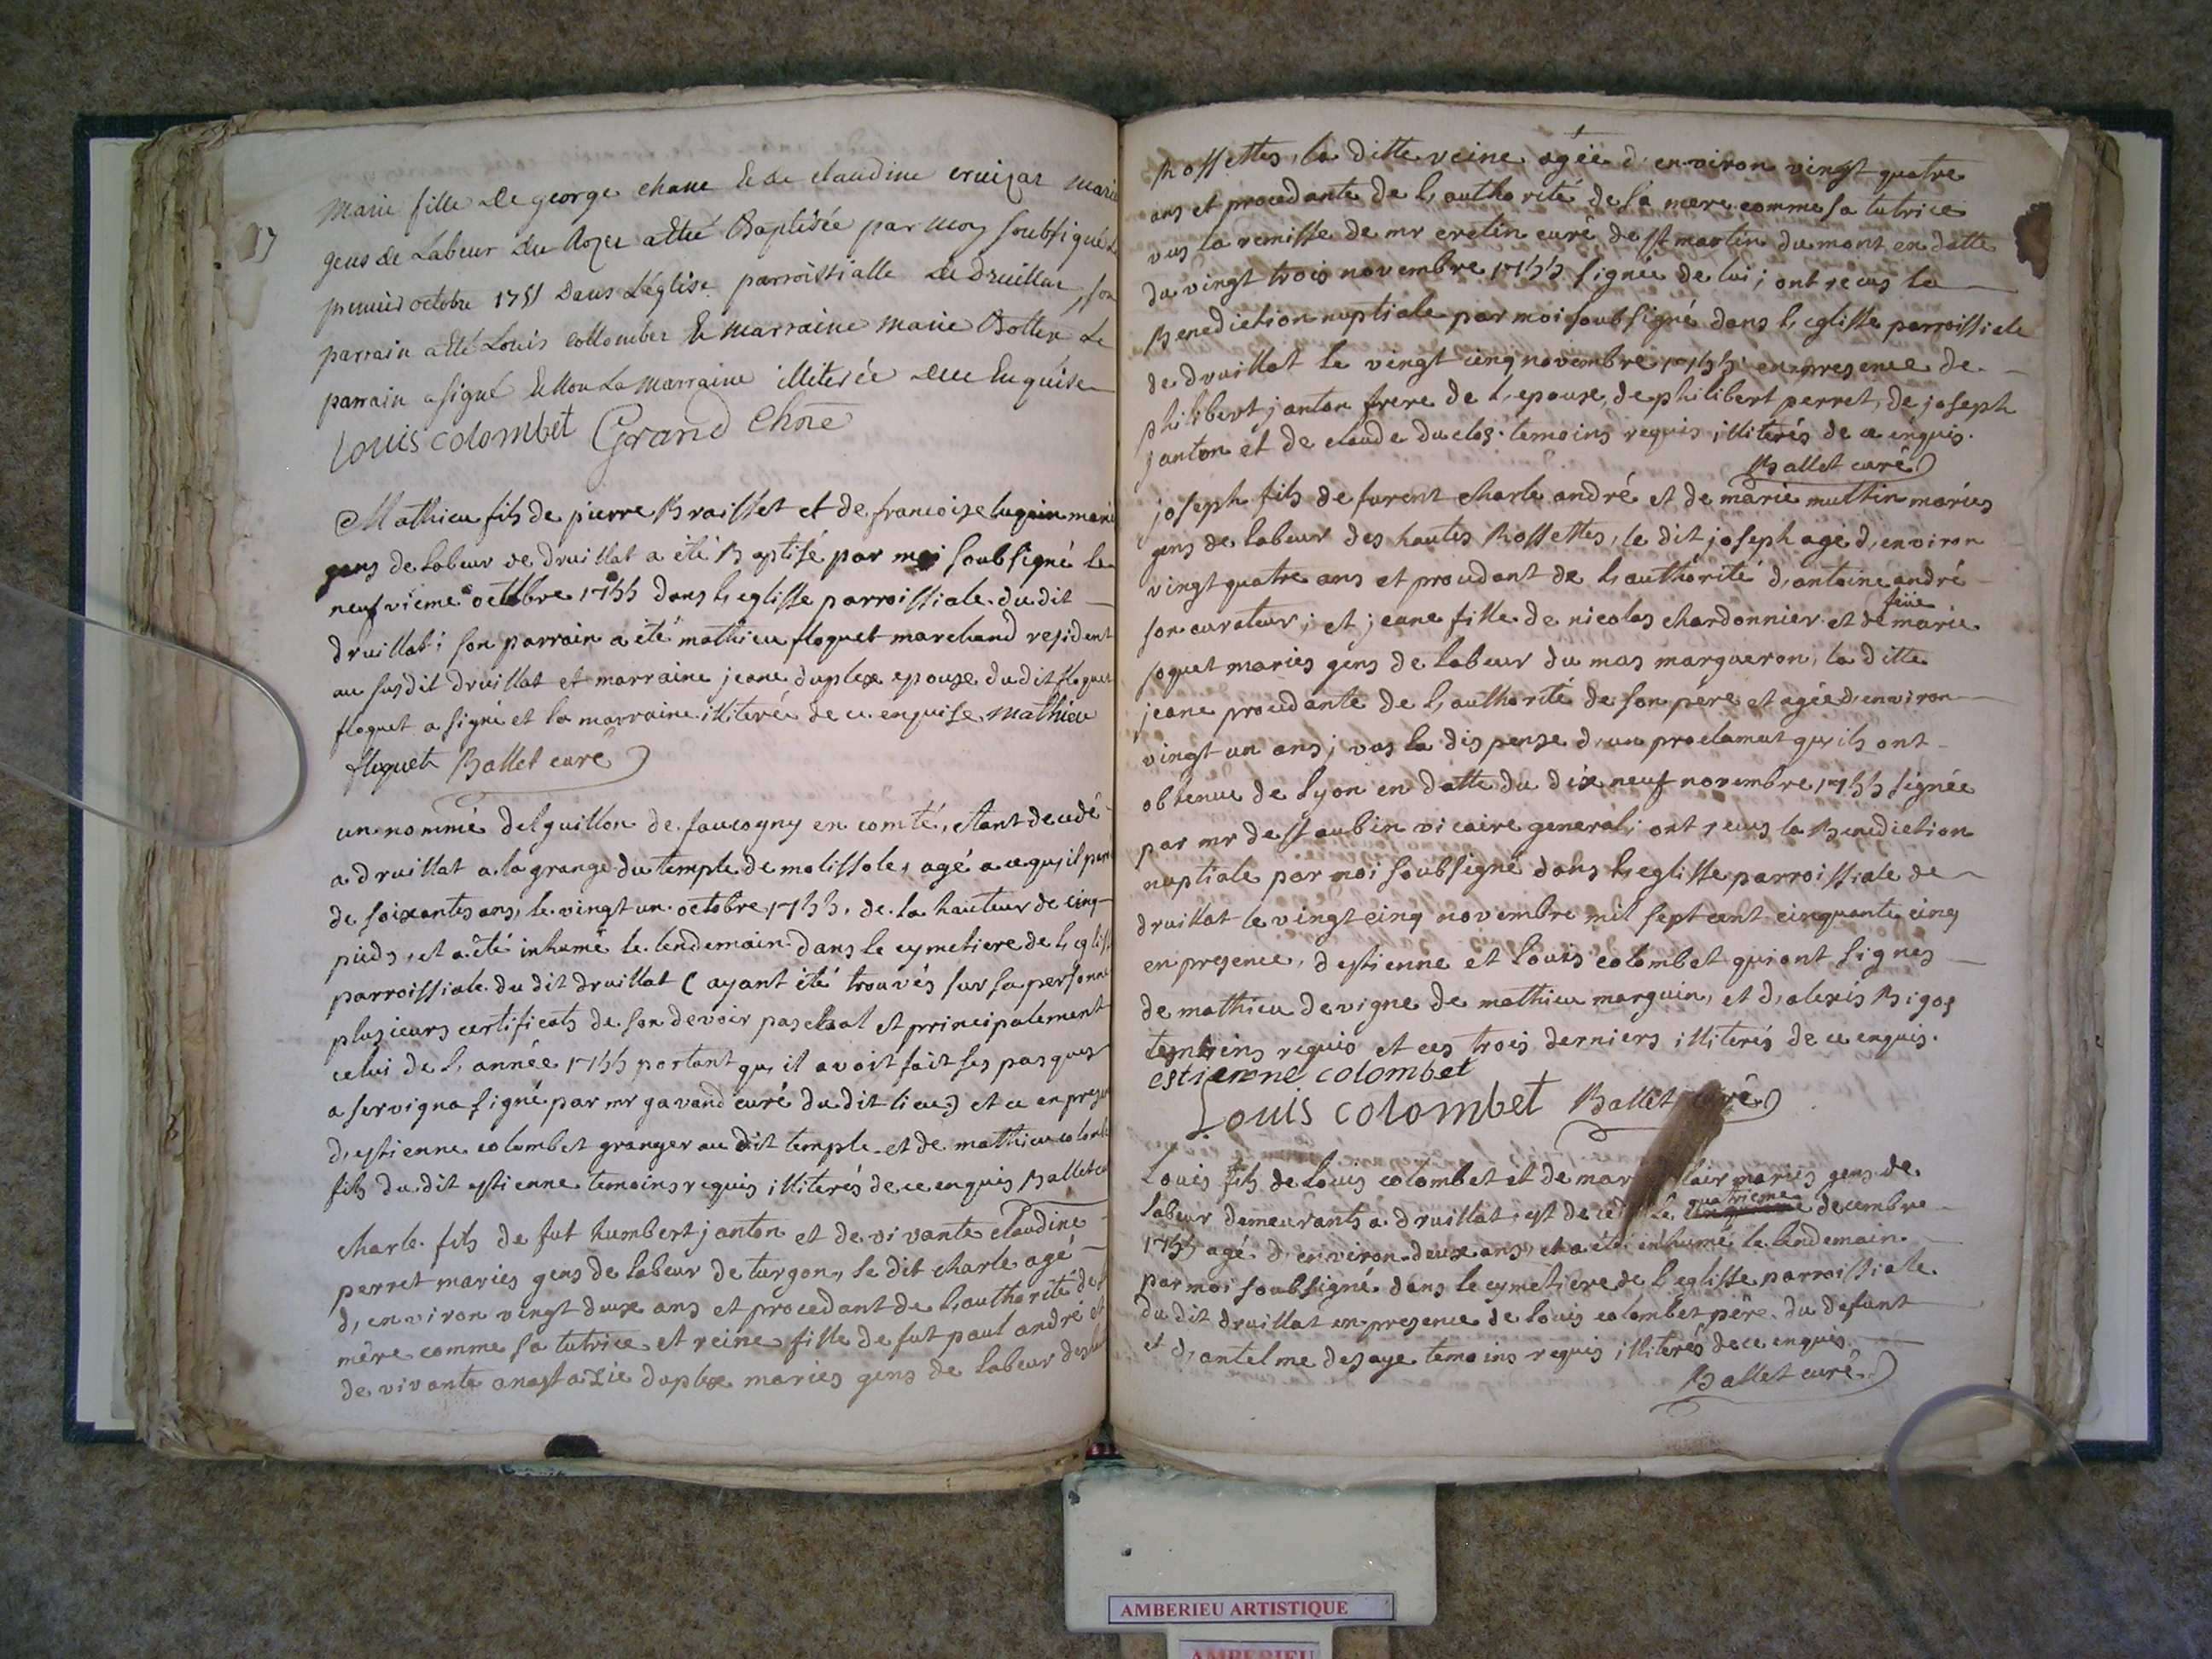 17
Marie fille de george chane & de claudine cruizat marie
gens de Labeur du Rozet a été Baptisée par moy soubsigné Le
premier octobre 1755 dans L'eglise parroissialle de druillat, son
parrain a été Louis collombet & marraine marie Bottex Le
parrain a signé & Non La marraine illiterée de ce Enquise
Louis colombet Grand Chne
Mathieu fils de pierre Braisset et de francoise luguin marie
gens de labeur de druillat a été Baptisé par moi soubsigné le
neufvieme octtbre 1755 dans l,eglisse parroissiale du dit
druillat; son parrain a été mathieu floquet marchand resident
au susdit druillat et marraine jeane duplex epouse du dit floquet
floquet a signé et la marraine illiterée de ce enquise mathieu
floquet Ballet curé
un nommé delguillon de faucogny en comté, etant decedé
a druillat a la grange du temple de molissole, agé a ce qu,il par
de soixantes ans, le vingt un octobre 1755, de la hauteur de cinq
pieds, et a été inhumé le lendemain dans le cymetiere de l,eglis
parroissiale du dit druillat (ayant été trouvés sur sa personne
plusieurs certificats de son devoir paschal et principalement
celui de l,année 1755 portant qu,il avoit fait ses pasques
a servigna signé par mr gavand curé du dit lieu) et ce en presen
d,estienne colombet granger au dit temple et de mathieu colomb
fils du dit estienne temoins requis illiterés de ce enquis Ballet cu
charle fils de fut humbert janton et de vivante claudine
perret maries gens de labeur de turgon, le dit charle agé
d,environ vingt deux ans et procedant de l,authorité de s
mère comme sa tutrice et reine fille de fut paul andré et
de vivante anastazie duplex maries gens de labeur des hau
Rossettes, la ditte reine agée d'environ vingt quatre
ans et procedante de l,authorité de sa mere comme sa tutrice
vus la remisse de mr cretin curé de st martin du mont en datte
du vingt trois novembre 1755 signée de lui; ont recus la
Benediction nuptiale par moi soubsigné dans l,eglisse parroissiale
de druillat le vingt cinq novembre 1755 en presence de
philibert janton frere de l,epoux, de philibert perret, de joseph
janton et de claude duclos temoins requis illiterés de ce enquis.
Ballet curé
joseph fils de furent charle andré et de marie muttin maries
gens de labeur des hautes Rossettes, le dit joseph agé d,environ
vingt quatre ans et procedant de l,authorité d,antoine andré
son curateur; et jeane fille de nicolas chardonnier et de feüe marie
soquet maries gens de labeur du mas margueron, la ditte
jeane procedante de l,authorité de son père et agée d,environ
vingt un ans; vus la dispense d,un proclamat qu,ils ont
obtenue de lyon en datte du dix neuf novembre 1755 signée
par mr de st aubin vicaire general; ont recus la Benediction
nuptiale par moi soubsigné dans l,eglisse parroissiale de
druillat le vingt cinq novembre mil sept cent cinquante cinq
en presence, d estienne et louis colombet qui ont signes
de mathieu devigne de mathieu marguin, et d,alexis Bigos
temoins requis et ces trois derniers illiterés de ce enquis.
estienne colombet
Louis colombet Ballet curé
Louis fils de louis colombet et de mar lair maries gens de
labeur demeurants a druillat est deced Le quatrieme decembre
1755 agé d,environ deux ans, et a été inhumé le lendemain
par moi soubsigné dans le cymetiere de l'eglisse parroissiale
du dit druillat en presence de louis colombet père du defunt
et d,antelme desaye temoins requis illiterés de ce enquis.
Ballet curé
AMBERIEU ARTISTIQUE
AMBERIEU